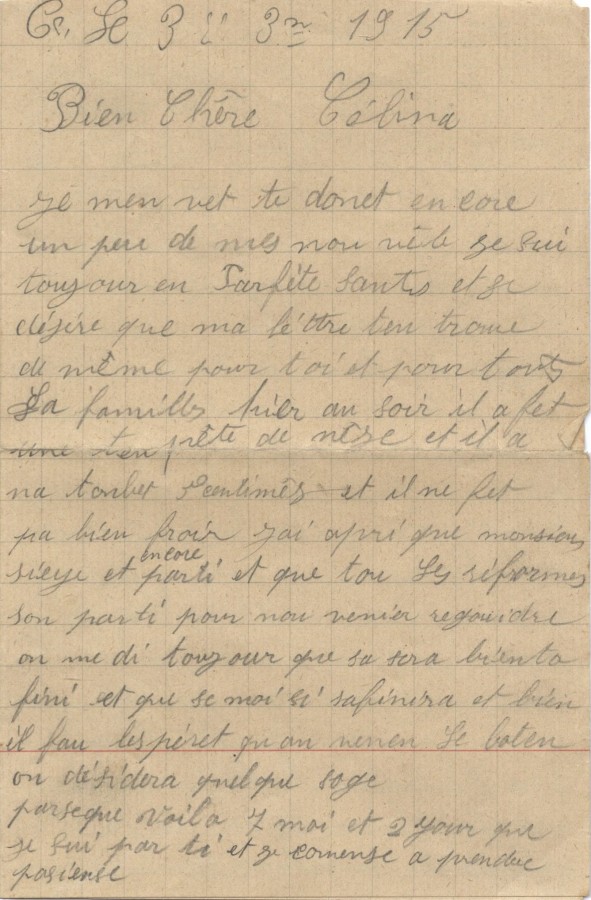 Ce, Le 3 3m 1915
Bien Chêre Célina
je men vet te donet encore
un peu de mes nou vèle je sui
toujour en Parfête Santé et je
désire que ma lèttre ten trouve
de même pour toi et pour touts
La famille hier au soir il a fet
une ten pête de nêge et il a
na tonbet 5 centimês et il ne fet
pa bien froir jai apri que monsieur
sieye et encore parti et que tou Les réformés
son parti pour nou venier regouidre
on me di toujour que sa sera biento
fini et que se moi si safinira et bien
il fau lespéret quan venen Le boten
on désidera quelque soge
parseque voila 7 moi et 2 jour que
je sui par ti et je comense a prendre
pasiense